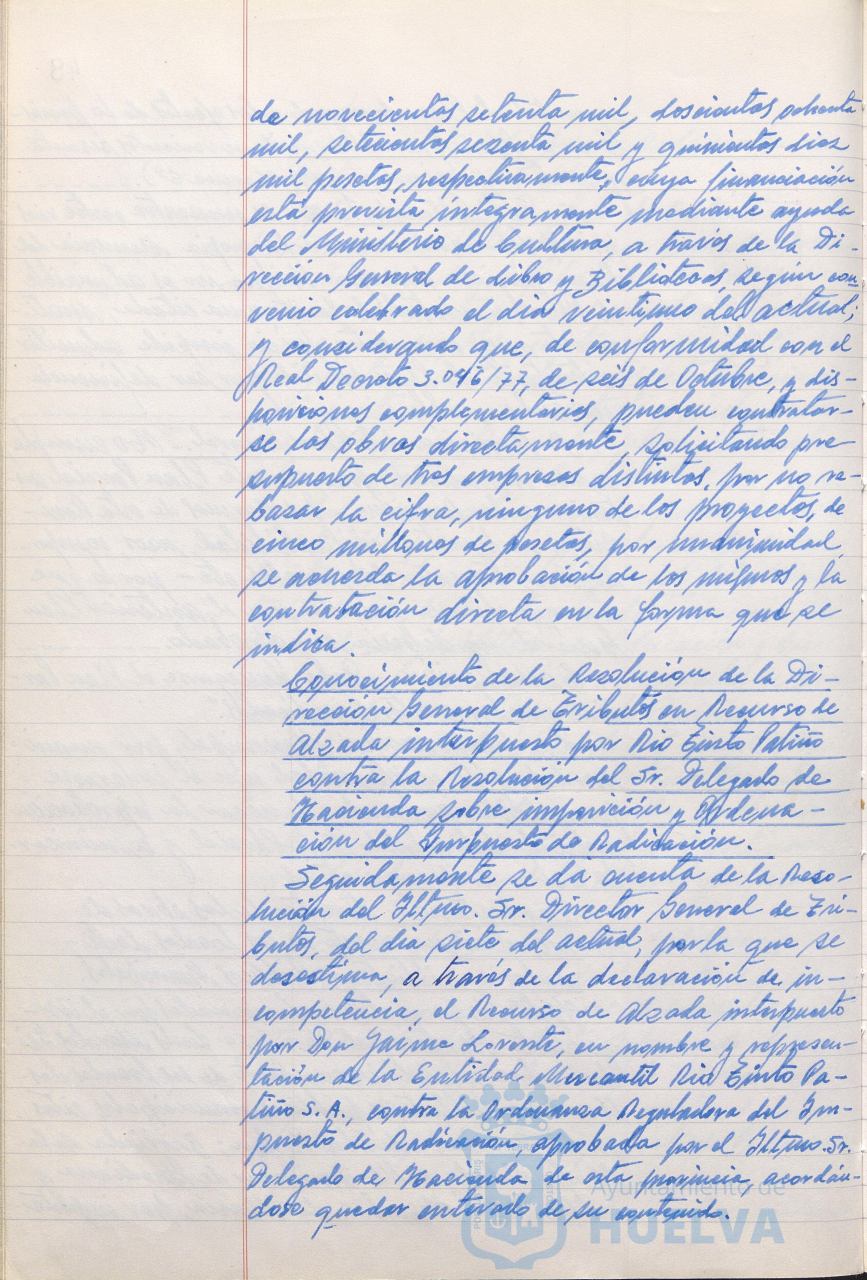 de novecientos setenta mil, doscientos ochenta
mil, setecientos sesenta mil y quinientos diez
mil pesetas, respectivamente, cuya financiación
está prevista íntegramente mediante ayuda
del Ministerio de Cultura, a través de la Di-
rección General de Libro y Bibliotecas, según con
venio celebrado el día veintiuno del actual;
y considerando que, de conformidad con el
Real Decreto 3.046/77, de seis de Octubre, y dis-
posiciones complementarias, pueden contratar-
se las obras directamente, solicitando pre
supuesto de tres empresas distintas, por no re-
basar la cifra, ninguno de los proyectos, de
cinco millones de pesetas, por unanimidad,
se acuerda la aprobación de los mismos y la
contratación directa en la forma que se
indica.
Conocimiento de la Resolución de la Di-
rección General de Tributos en Recurso de
Alzada interpuesto por Rio Tinto Patiño
contra la Resolución del Sr. Delegado de
Hacienda sobre imposición y Ordena-
ción del Impuesto de Radicación.
Seguidamente se da cuenta de la Reso-
lución del Iltmo. Sr. Director General de Tri-
butos, del día siete del actual, por la que se
desestima, a través de la declaración de in-
competencia, el Recurso de Alzada interpuesto
por Don Jaime Lorente, en nombre y represen-
tación de la Entidad Mercantil Rio Tinto Pa-
tiño S.A., contra la Ordenanza Reguladora del Im-
puesto de Radicación, aprobada por el Iltmo. Sr.
Delegado de Hacienda de esta provincia, acordán-
dose quedar enterado de su contenido.
Ayuntamiento de
HUELVA